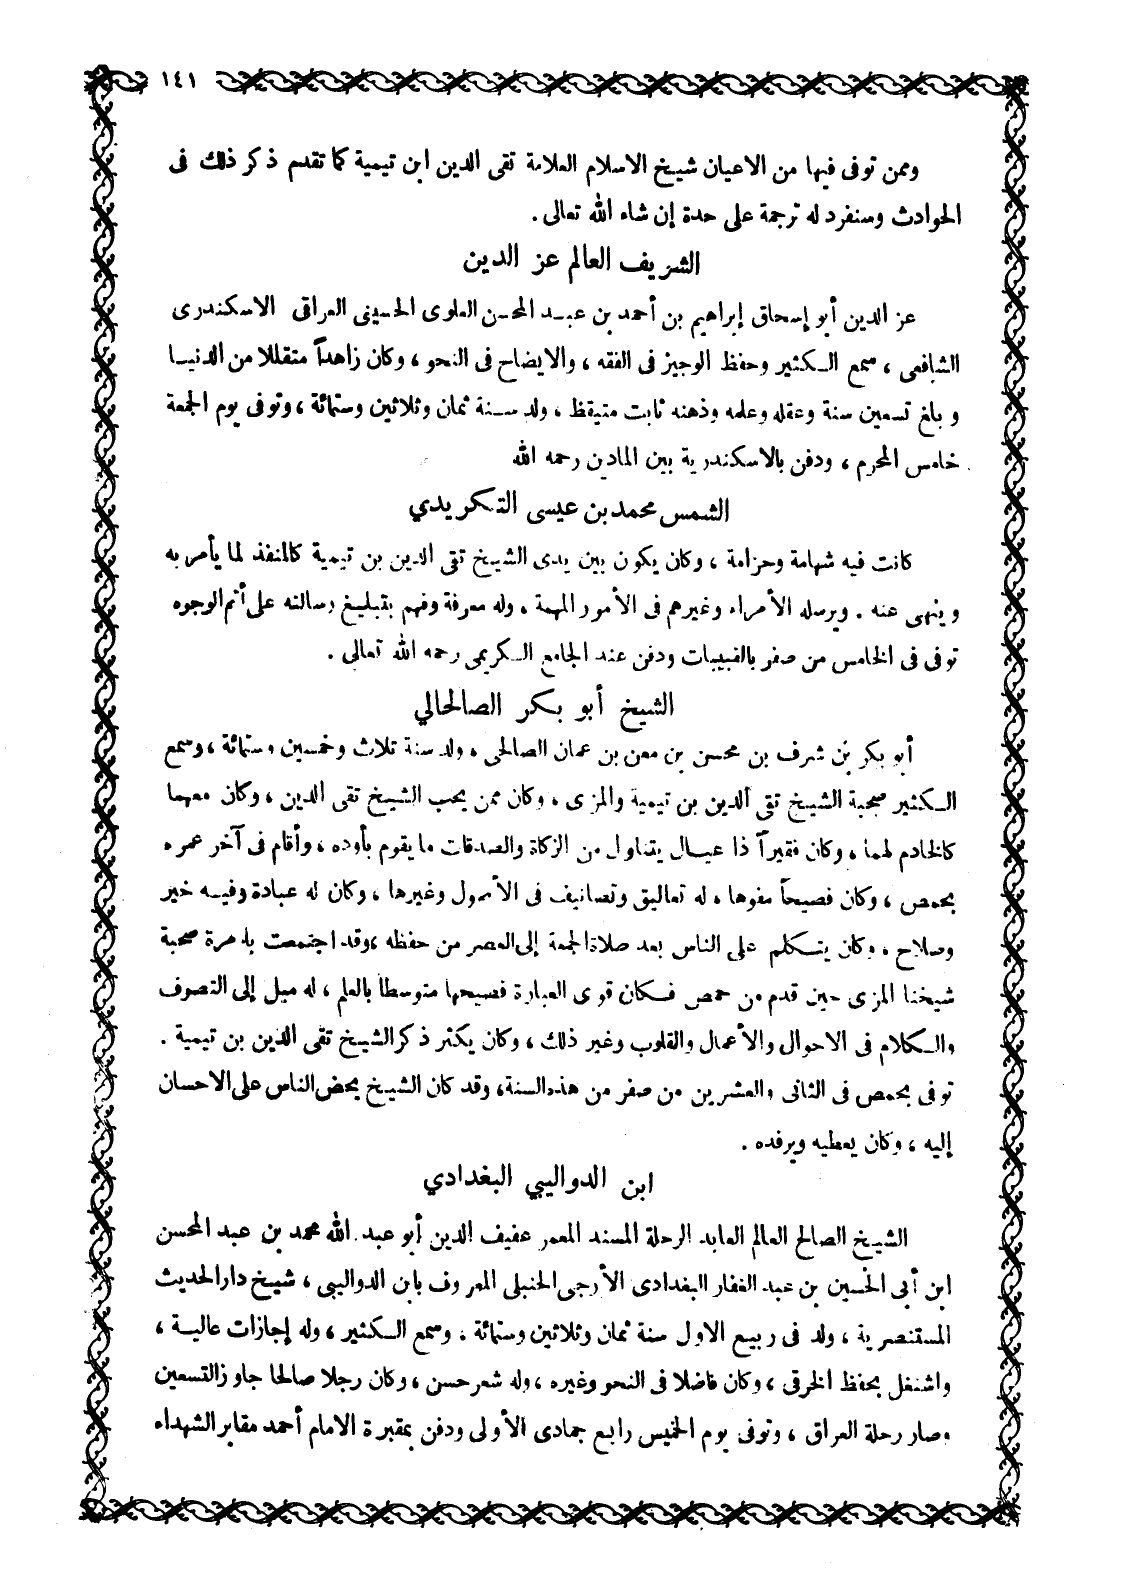 ١٤١
وممن توفى فيها من الاعيان شيخ الاسلام العلامة تقى الدين ابن تيمية كما تقدم ذكر ذلك فى
الحوادث وسنفرد له ترجمة على حدة إن شاء الله تعالى .
الشريف العالم عز الدين
عز الدين أبو إسحاق إبراهيم بن أحمد بن عبد المحسن العلوى الحسينى العراقى الاسكندرى
الشافعى ، سمع الكثير وحفظ الوجيز فى الفقه ، والايضاح فى النحو ، وكان زاهداً متقللا من الدنيا
وبلغ تسعين سنة وعقله وعلمه وذهنه ثابت متيقظ ، ولد سنة ثمان وثلاثين وستمائة ، وتوفى يوم الجمعة
خامس المحرم ، ودفن بالاسكندرية بين المادين رحمه الله
الشمس محمد بن عيسى التكريدي
كانت فيه شهامة وحزامة ، وكان يكون بين يدى الشيخ تقى الدين بن تيمية كالمنفذ لما يأمر به
وينهى عنه . ويرسله الأمراء وغيرهم فى الأمور المهمة ، وله معرفة وفهم بتبليغ رسالته على أتم الوجوه
توفى فى الخامس من صفر بالقبيبات ودفن عند الجامع الكريمى رحمه الله تعالى .
الشيخ أبو بكر الصالحالي
أبو بكر بن شرف بن محسن بن معن بن عمان الصالحى ، ولد سنة ثلاث وخمسين وستمائة ، وسمع
الكثير صحبة الشيخ تقى الدين بن تيمية والمزى ، وكان ممن يحب الشيخ تقى الدين ، وكان معهما
كالخادم لهما ، وكان فقيراً ذا عيال يتناول من الزكاة والصدقات ما يقوم بأوده ، وأقام فى آخر عمره
بحمص ، وكان فصيحاً مفوها ، له تعاليق وتصانيف فى الأصول وغيرها ، وكان له عبادة وفيه خير
وصلاح ، وكان يتكلم على الناس بعد صلاة الجمعة إلى العصر من حفظه ، وقد اجتمعت به مرة صحبة
شيخنا المزى حين قدم من حمص فكان قوى العبارة فصيحها متوسطا بالعلم ، له ميل إلى التصوف
والكلام فى الاحوال والأعمال والقلوب وغير ذلك ، وكان يكثر ذكر الشيخ تقى الدين بن تيمية .
توفى بحمص فى الثانى والعشرين من صفر من هذه السنة ، وقد كان الشيخ يحض الناس على الاحسان
إليه ، وكان يعطيه ويرفده .
ابن الدواليبي البغدادي
الشيخ الصالح العالم العابد الرحلة المسند المعمر عفيف الدين أبو عبد الله محمد بن عبد المحسن
ابن أبى الحسين بن عبد الغفار البغدادى الأرجى الحنبلى المعروف بابن الدواليبى ، شيخ دار الحديث
المستنصرية ، ولد فى ربيع الاول سنة ثمان وثلاثين وستمائة ، وسمع الكثير ، وله إجازات عالية ،
واشتغل بحفظ الخرقى ، وكان فاضلا فى النحو وغيره ، وله شعر حسن ، وكان رجلا صالحا جاوز التسعين
وصار رحلة العراق ، وتوفى يوم الخميس رابع جمادى الأولى ودفن بمقبرة الامام أحمد مقابر الشهداء